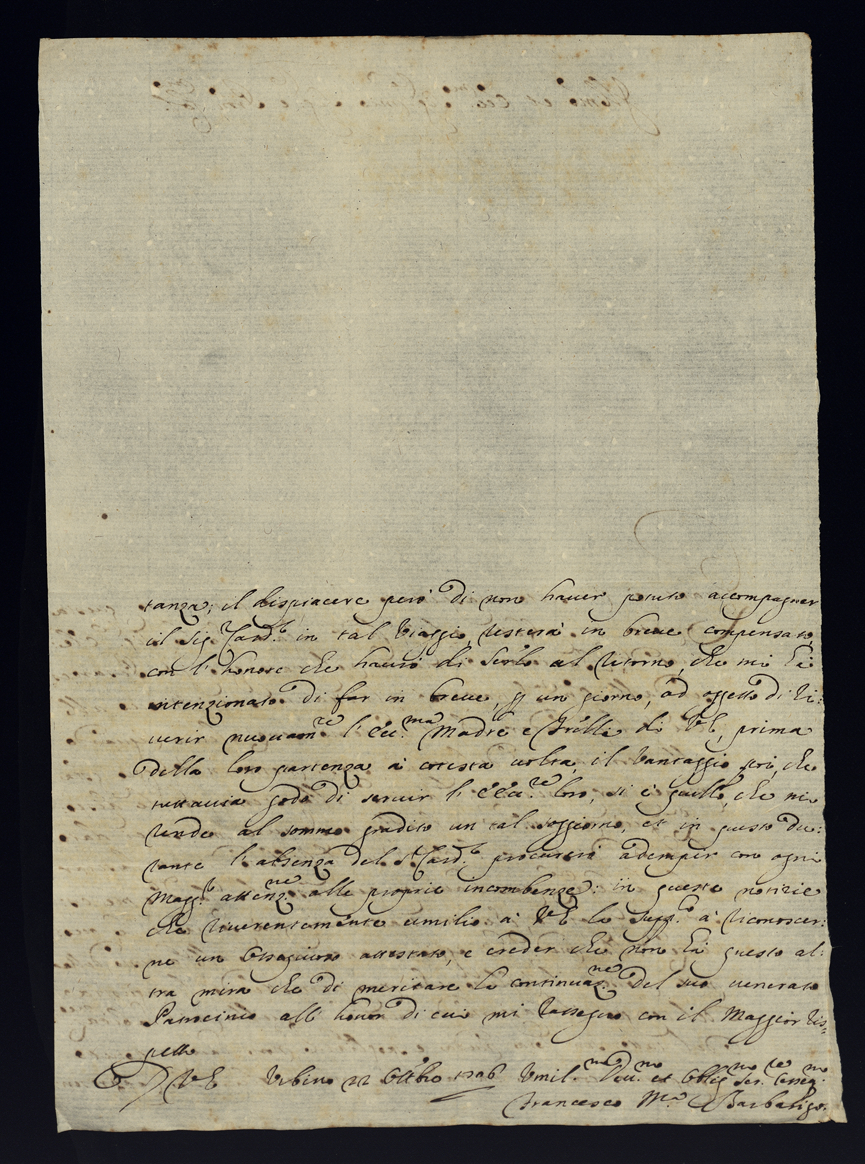 tanza; il dispiacere però di non haver potuto accompagnar
il Sig.r Card.le in tal Viaggio resterà in breve compensato
con l'honore che haverò di Servirlo al ritorno, che mi hà
intenzionato di far in breve, p un giorno, ad oggetto di ri:
verir nuovam.te l'ecc.ma Madre e Frelle di V.E, prima
della loro partenza à cotesta volta, il Vantaggio poi, che
tuttavia godo di servir l'ecc.ze loro, si è quello, che mi
rende al sommo gradito un tal soggiorno, et in questo du:
rante l'absenza del S.r Card.le procurerò adempir con ogni
Magg.r attenz.ne alle proprie incombenze: in queste notizie
che riverentemente umilio à V.E la supp.co à riconoscer:
ne un Ossequioso attestato, e creder che non hà questo al:
tra mira che di meritare la continuaz.ne del suo venerato
Patrocinio all'honor di cui mi rassegno con il Maggior ris:
petto
D V.E Urbino 22 Ottbro 1706 Umil.mo Dev.mo et Obblig.mo Ser.re
Francesco M.a Barbarigo